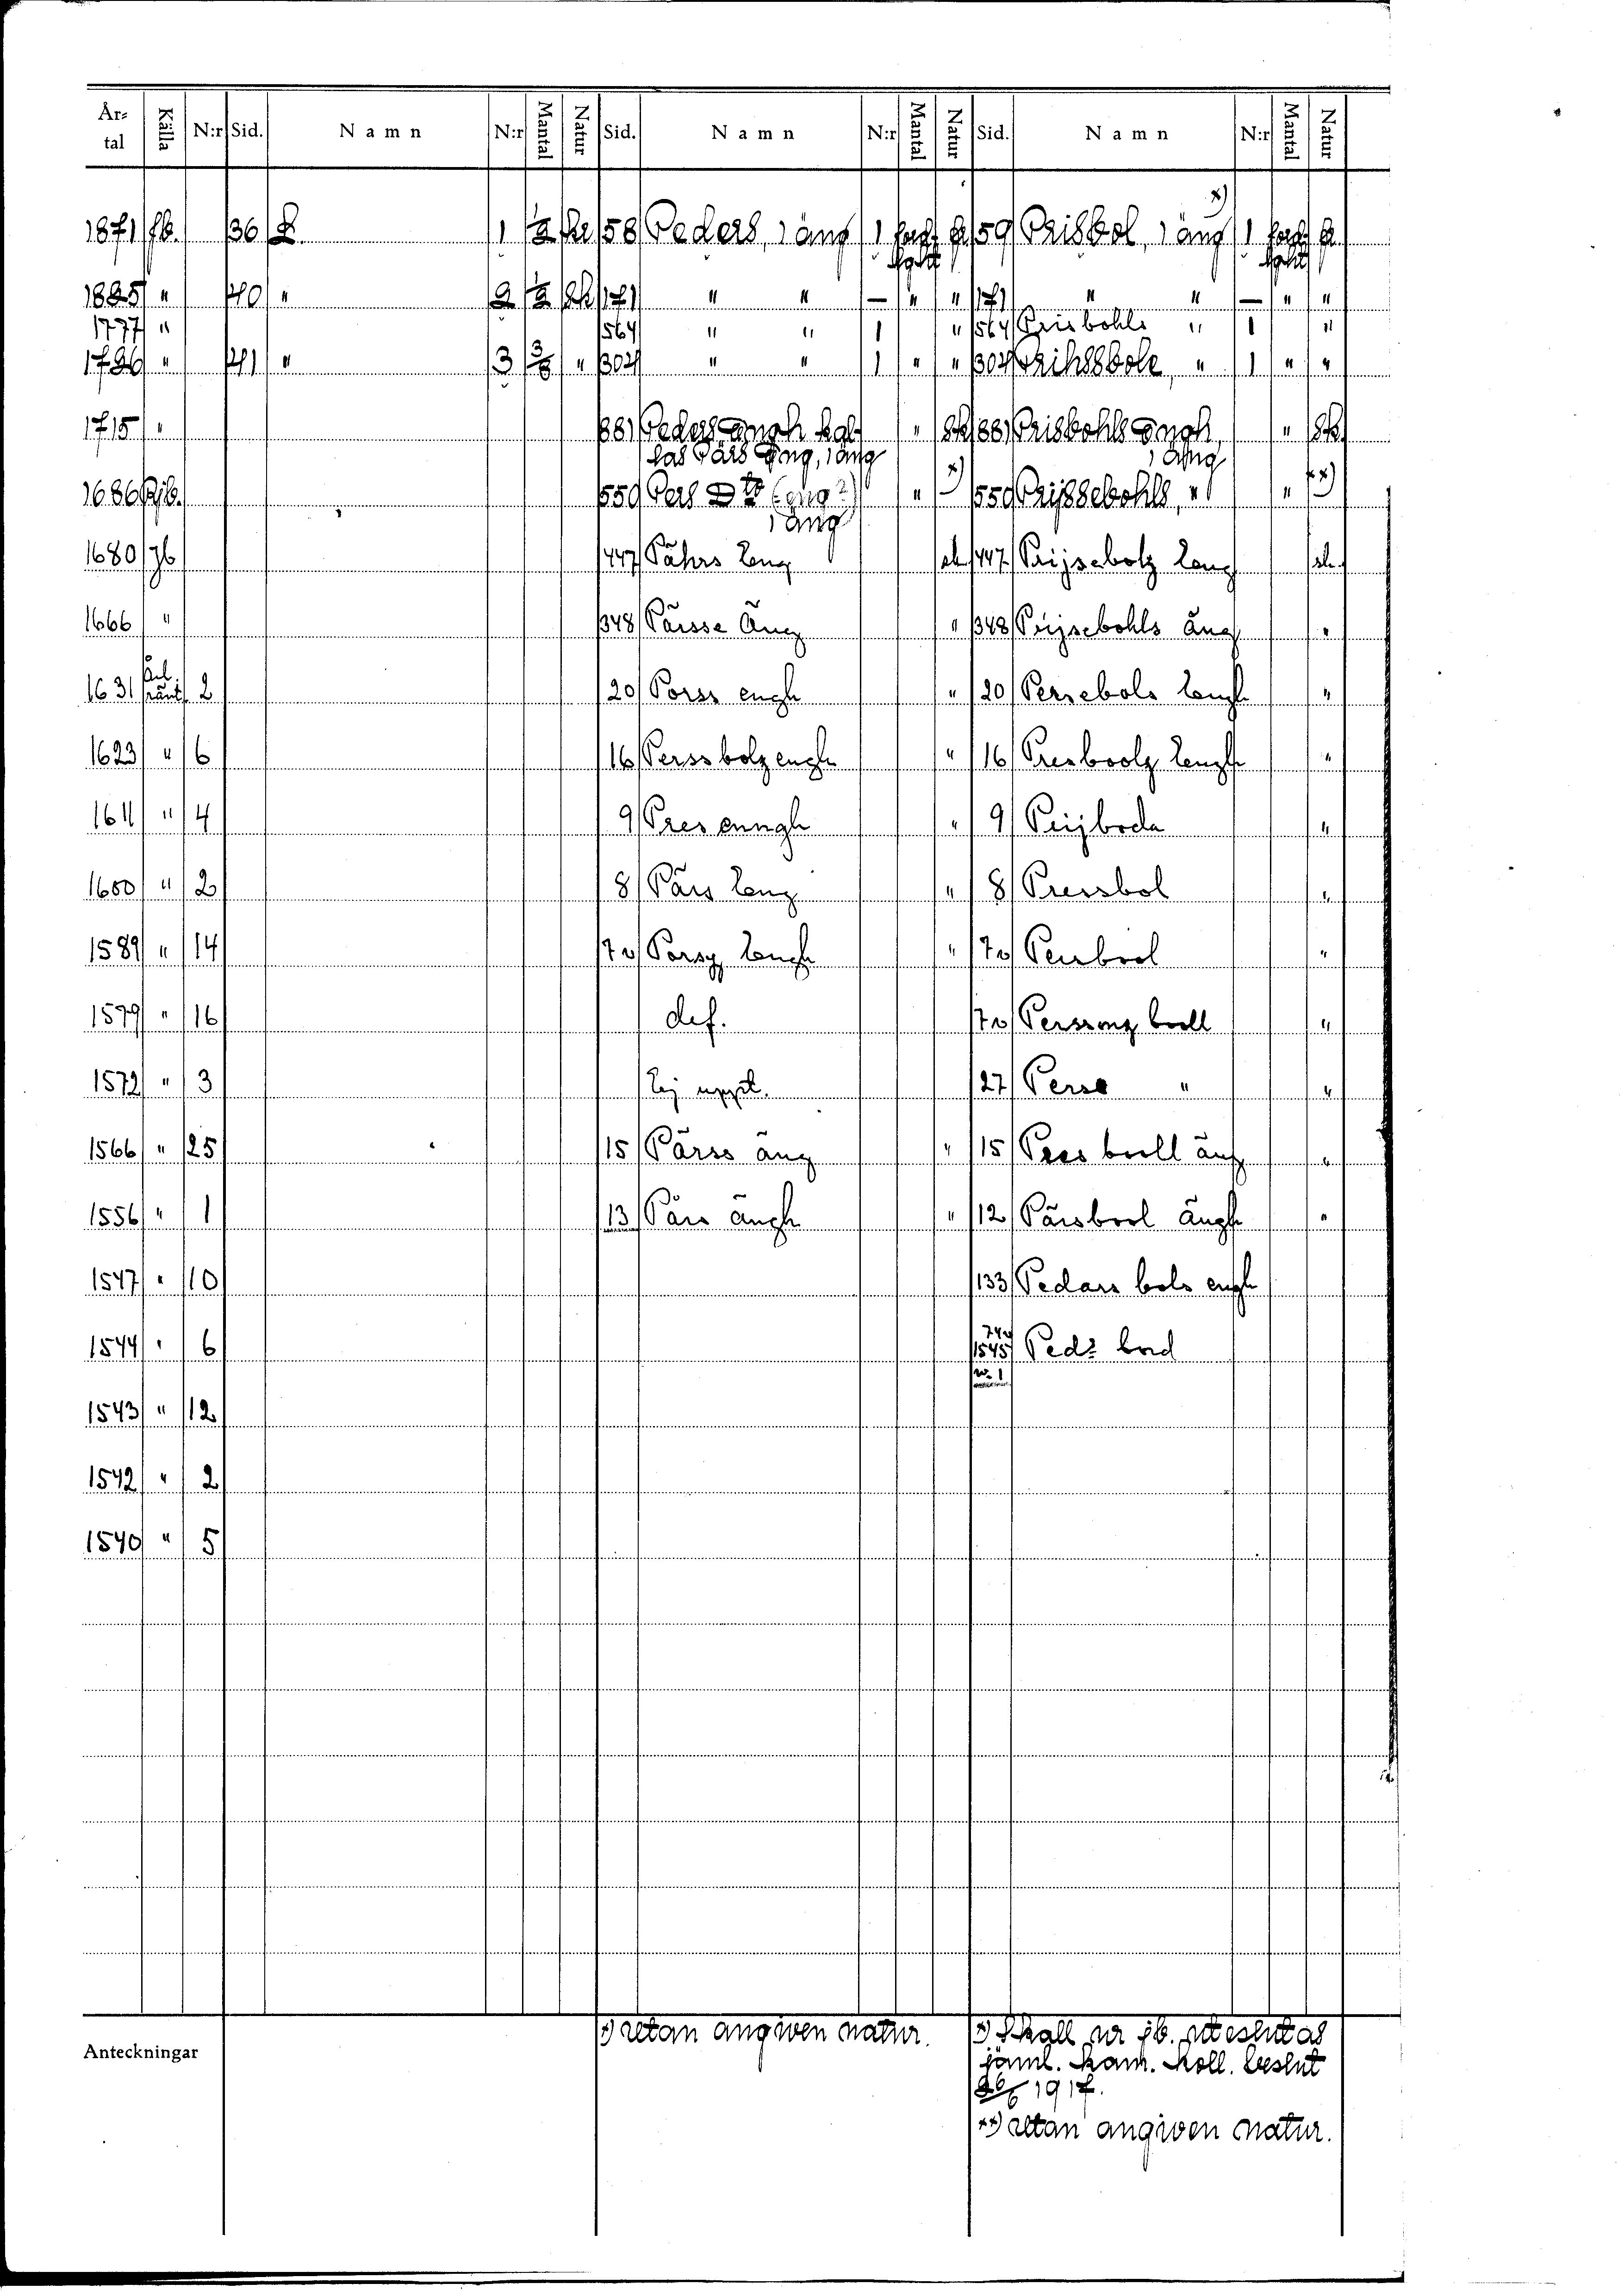 År-tal Källa N:r Sid. Namn N:r Mantal Natur Sid. Namn N:r Mantal Natur Sid. Namn N:r Mantal Natur
x)
1871 jb. 36 1 1/2 58 Peders, 1 äng 1 59 Prisbol, 1 äng 1
1825 " 40 " 2 1/2 Sk 171 " " — " " 171 " " — " "
1777 " 564 " " 1 " 564 Prisbohls " 1 "
1726 " 41 " 3 3/8 " 304 " " 1 " " 304 Prihssbole, " 1 " "
1715 " 881 Peders ängh kal- " Sk 881 Prisbohls ängh, " Sk.
las Pärs Äng, 1 äng 1 äng
1686 Rjb. 550 Pers Dto (eng?) " x) 550 Prijssebohls, " " xx)
1 äng
1680 Jb 447 Påhrs Eng sk 447 Prijsebolz Eng sk.
1666 " 348 Pärsse Äng " 348 Prijsebohls äng "
1631 Årl. ränt. 2 20 Porss engh " 20 Persebols Engh "
1623 " 6 16 Perssbolz engh " 16 Presboolz Engh "
1611 " 4 9 Pres enngh " 9 Prijboda "
1600 " 2 8 Pärs Eng " 8 Pressbol "
1589 " 14 7v Porsz Engh " 7v Persbool "
1579 " 16 def. 7v Perssonz booll "
1572 " 3 Ej uppt. 27 Perse " "
1566 " 25 15 Pärss äng " 15 Pers booll äng "
1556 " 1 13 Pärs ängh " 12 Pärsbool ängh "
1547 " 10 133 Pedars bols engh
1544 " 6 74v 1545 nr. 1 Peds bord
1543 " 12
1542 " 2
1540 " 5
Anteckningar
x) utan angiven natur.
x) Skall ur jb. uteslutas
jäml. kam. koll. beslut
26/6 1917.
xx) utan angiven natur.